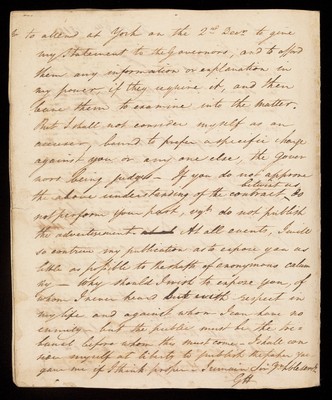 to attend at York on the 2nd Decr. to give
my Statement to the Governors, and to afford
them any information or explanation in
my power, if they require it, and then
leave them to examine into the matter.
But I shall not consider myself as an
accuser, bound to prefer a specific charge
against you or any one else, the Gover
nors being judges — If you do not approve
the above understanding of the contract between us, do
not perform your part, do not publish
the advertisement. At all events, I will
so contrive my publication as to expose you as
little as possible to the shafts of anonymous calum
ny — Why should I wish to expose you, of
whom I never heard but with respect in
my life and against whom I can have no
enmity — but the public must be the
before whom this must come — I shall con
sider myself at liberty to publish the paper you
gave me if I think proper — I remain Sir Yr
GH